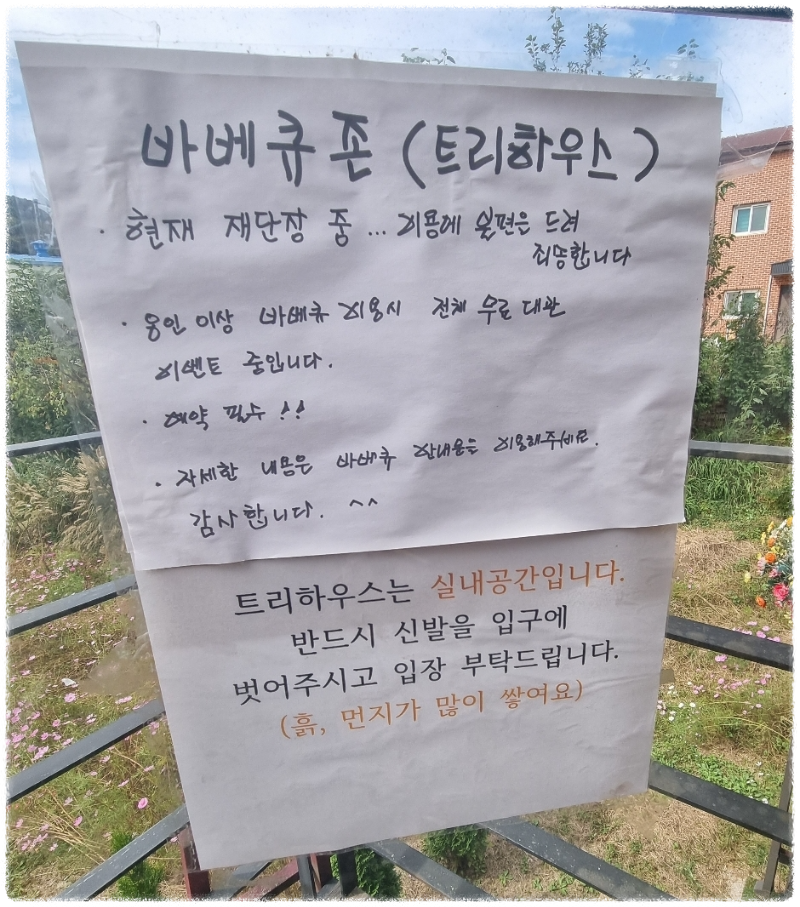 바베큐존 (트리하우스)
· 현재 재단장 중 ... 이용에 불편은 드려
죄송합니다
인 이상 바베큐 이용시 전체 무료 대관
이벤트 중입니다.
· 예약 필수 !!
· 자세한 내용은 바베큐 안내문을 이용해주세요.
감사합니다. ^^
트리하우스는 실내공간입니다.
반드시 신발을 입구에
벗어주시고 입장 부탁드립니다.
(흙, 먼지가 많이 쌓여요)